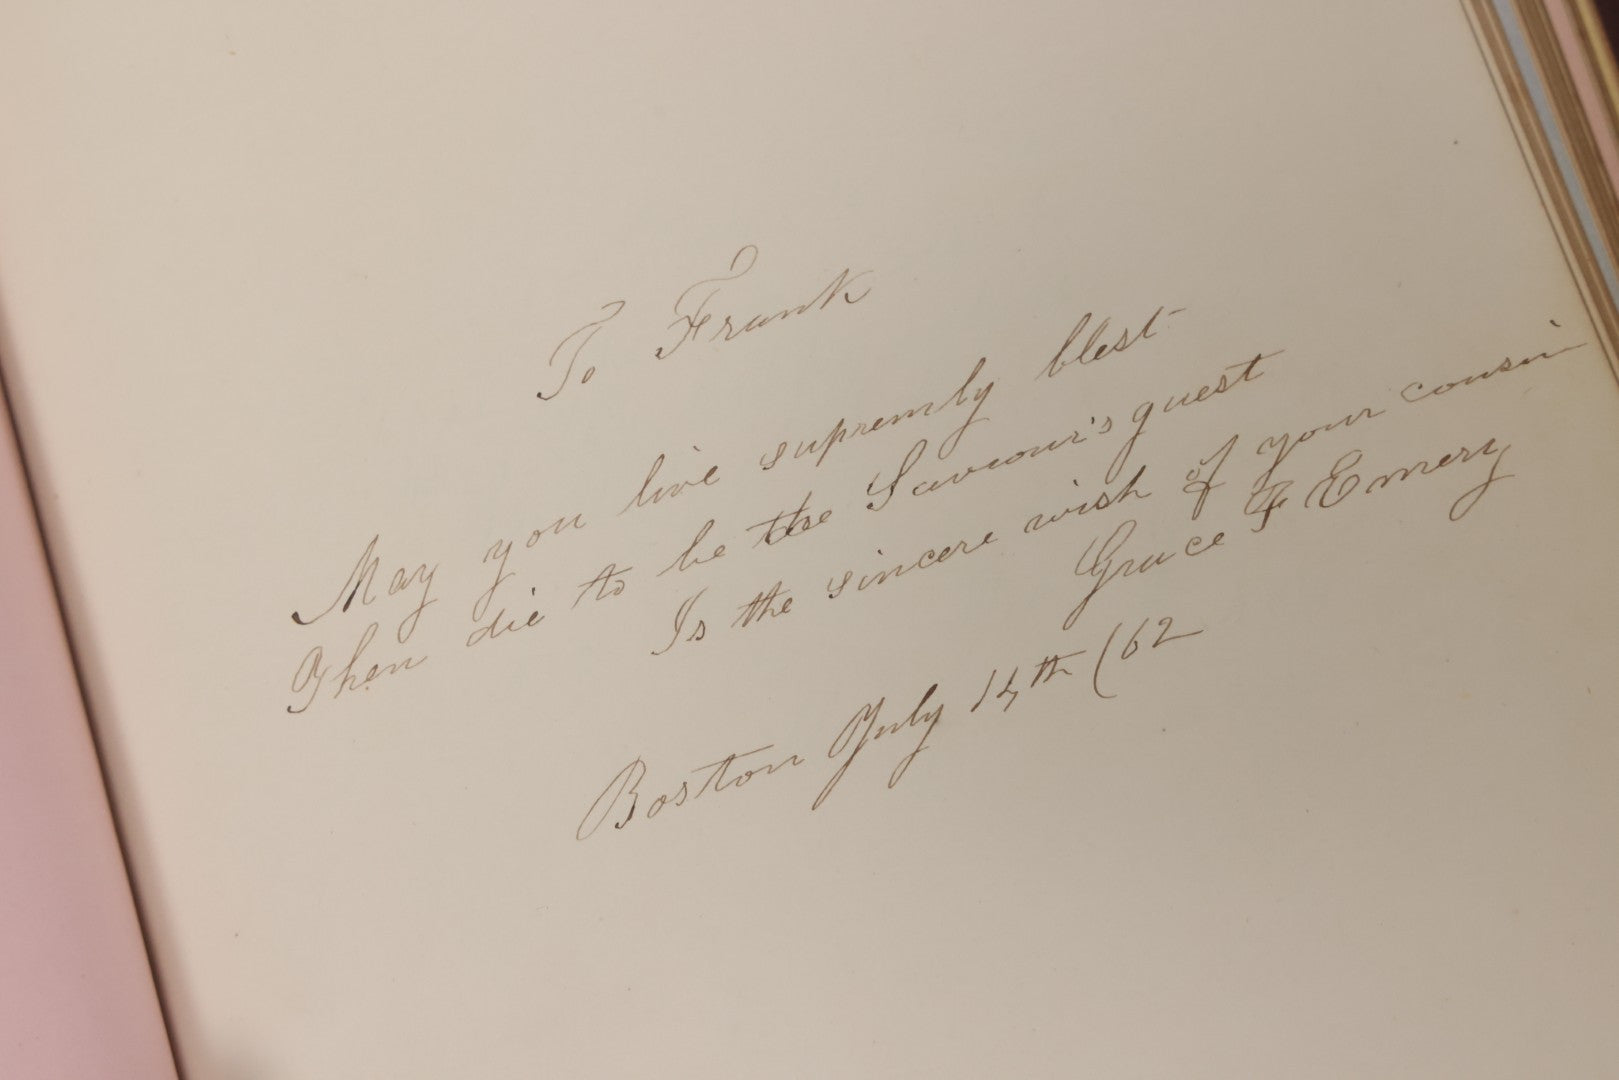 To Frank
May you live supremly blest
Then die to be the Saviour's guest
Is the sincere wish of your cousin
Grace F Emery
Boston July 14th (62